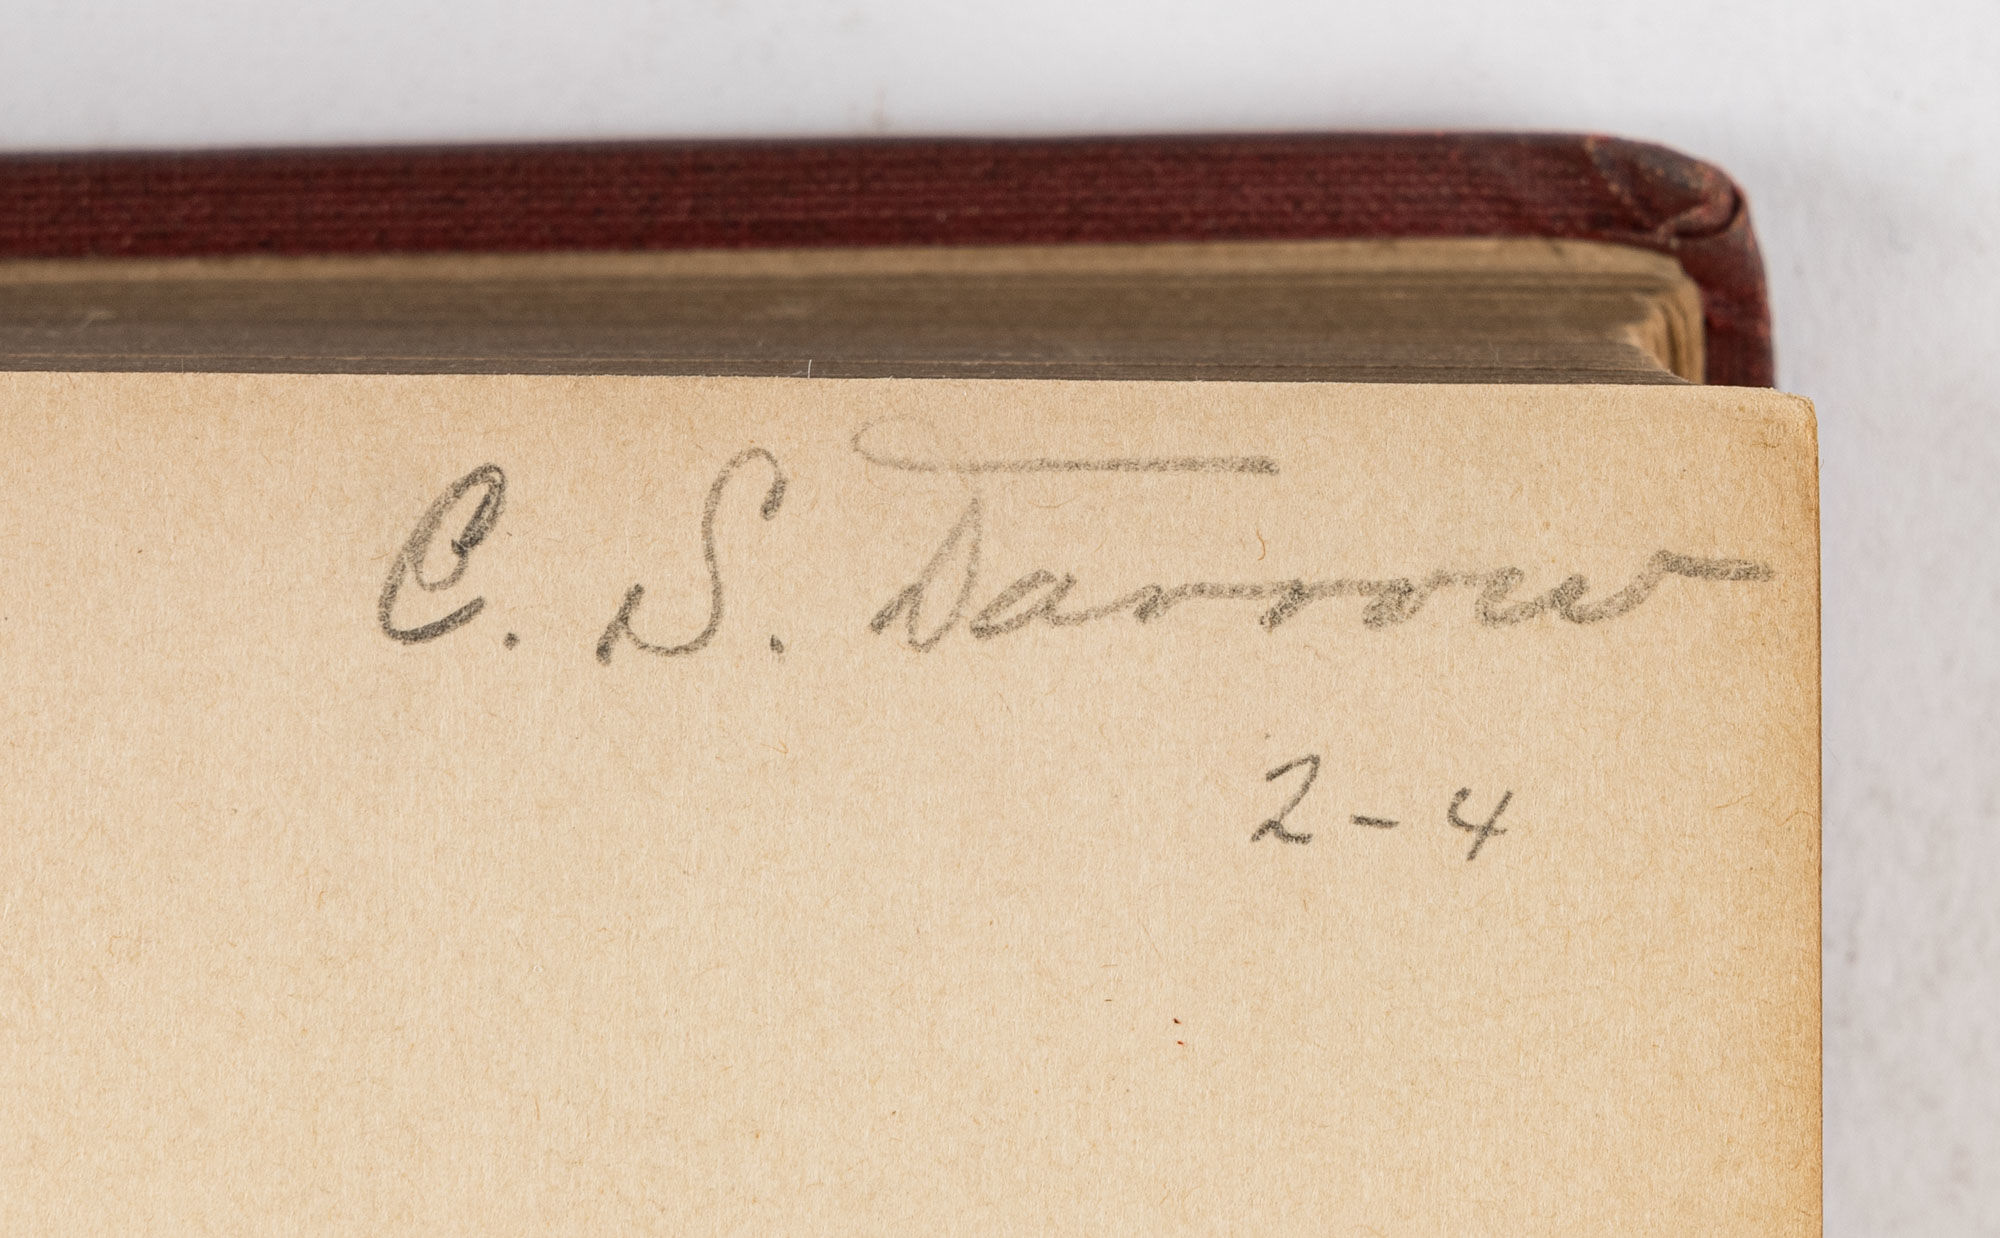 C. S. Darrow
2-4